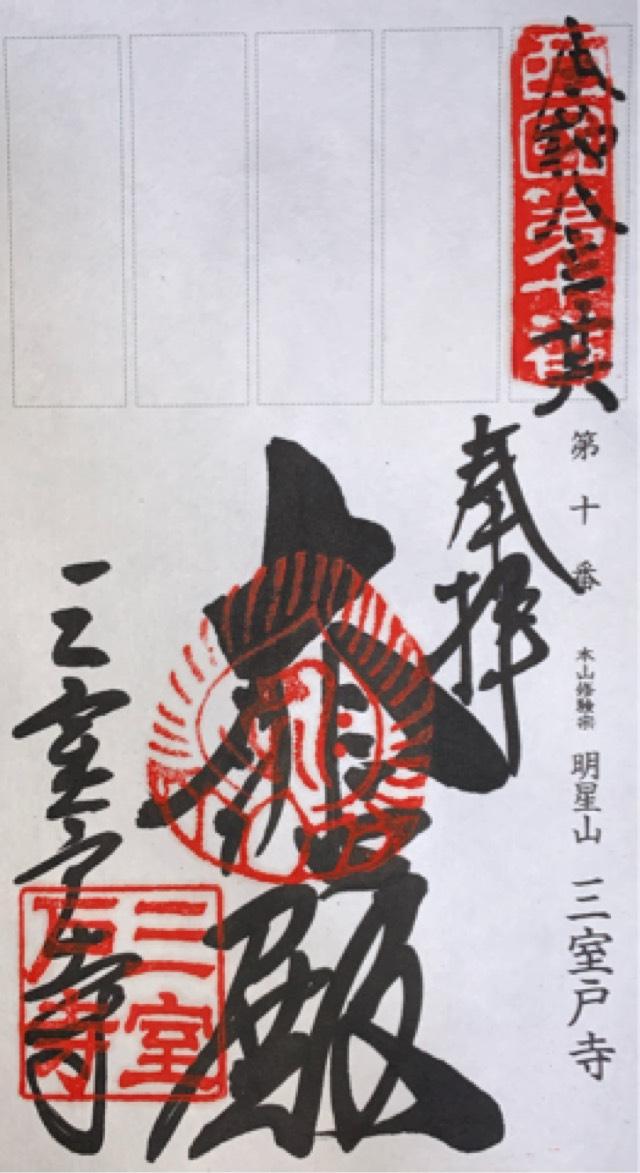 西國第十番
第十番 本山修験宗 明星山 三室戸寺
奉拝
大悲殿
三室戸寺
三室
戸寺